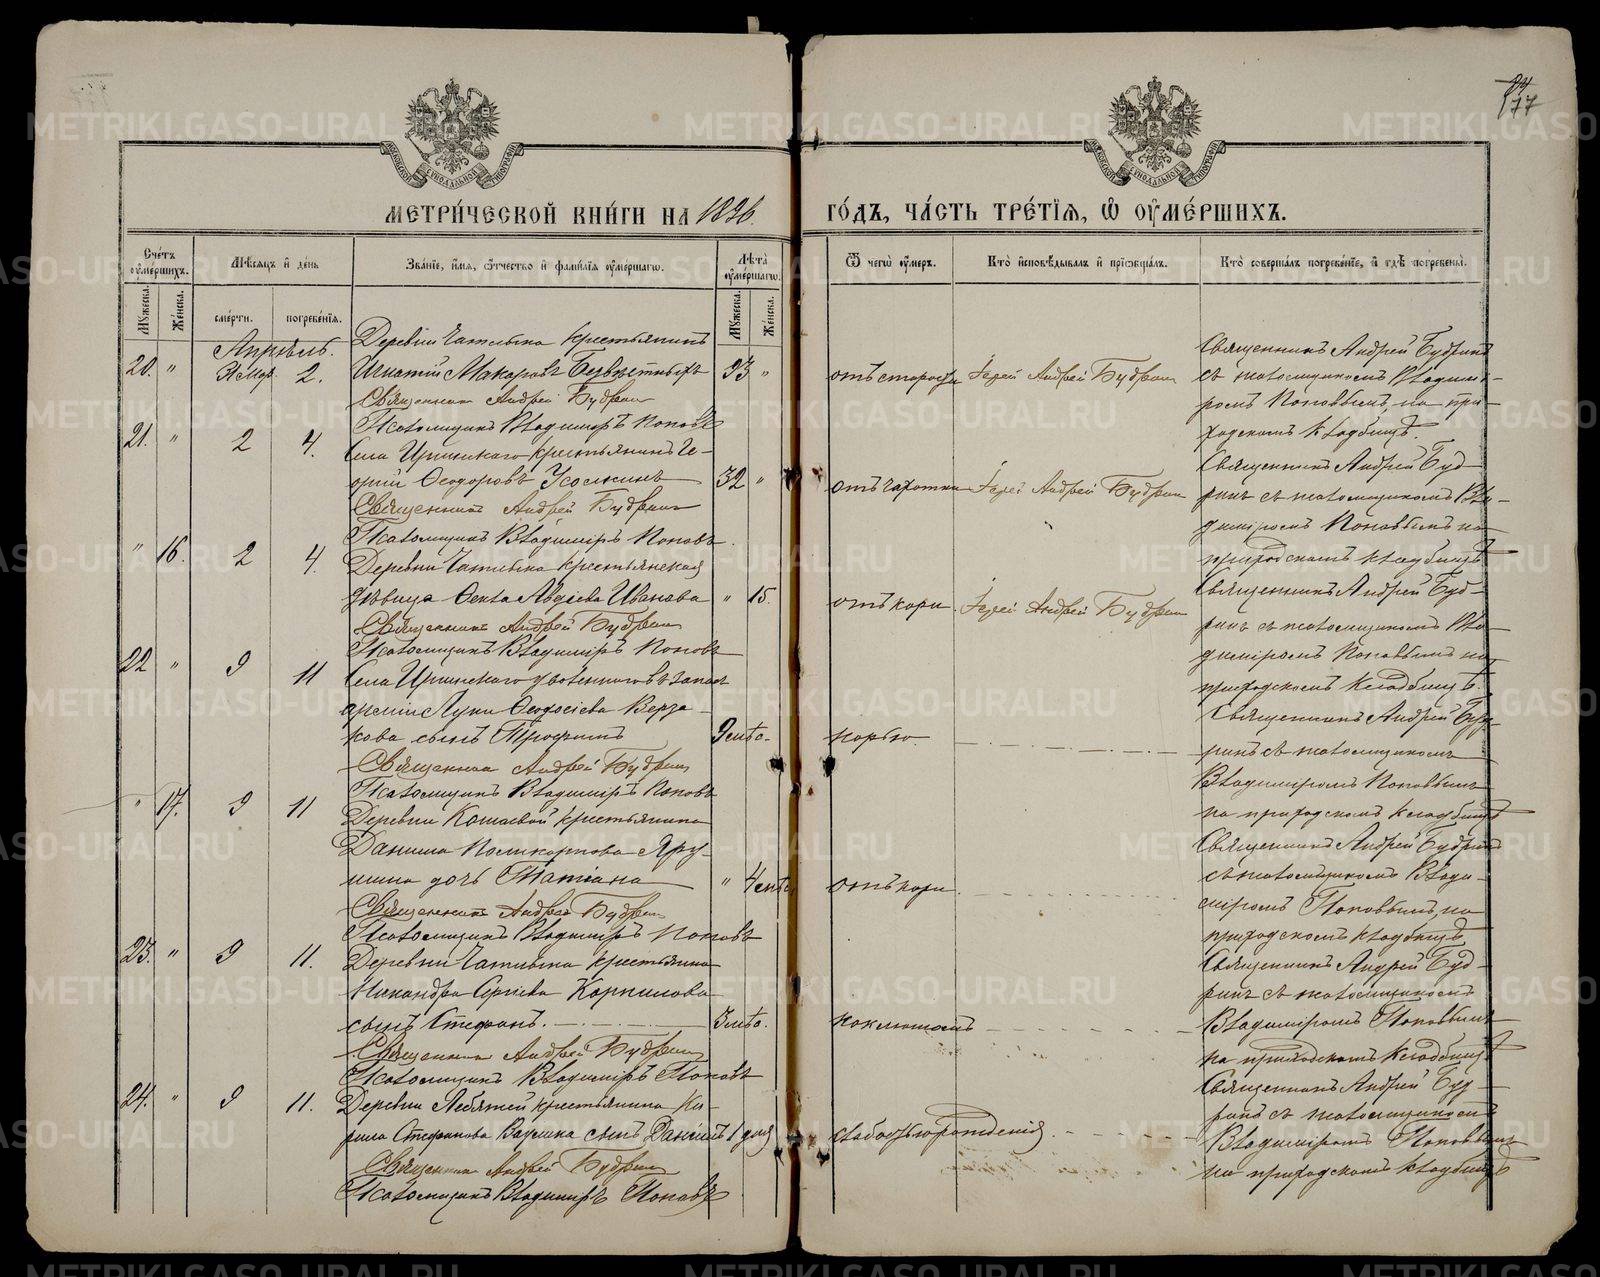 МЕТРИ́ЧЕСКОЙ КНИ́ГИ НА 1896
ГО́ДЪ, ЧА́СТЬ ТРЕ́ТІѦ, Ѡ ОУ҆МЕ́РШИХЪ.
177
Сче́тъ оу҆ме́ршихъ.
Мѣсѧцъ и҆ де́нь
Зва́нїе, и҆́мѧ, ѻ҆́тчество и҆ фами́лїѧ оу҆ме́ршагѡ.
Лѣ́та оу҆ме́ршагѡ.
Ѿ чегѡ̀ оу҆́меръ.
Кто̀ и҆сповѣ́дывалъ и҆ прїѡбща́лъ.
Кто̀ соверша́лъ погребе́нїе, и҆ гдѣ̀ погребены̀.
Мꙋ́жеска.
Же́нска.
сме́рти.
погребе́нїѧ.
Мꙋ́жеска.
Же́нска.
Апрѣль.
20. " 31 Мар. 2.
Деревни Чатлыка крестьянинъ
Игнатій Макаровъ Безвѣстныхъ 93 "
Священникъ Андрей Будринъ
Псаломщикъ Владиміръ Поповъ
отъ старости
Іерей Андрей Будринъ
Священникъ Андрей Будринъ
съ псаломщикомъ Владимі-
ромъ Поповымъ, на при-
ходскомъ кладбищѣ.
21. " 2 4.
Села Иргинскаго крестьянинъ Ге-
оргій Ѳеодоровъ 32 "
Священникъ Андрей Будринъ
Псаломщикъ Владиміръ Поповъ
отъ чахотки
Іерей Андрей Будринъ
Священникъ Андрей Буд-
ринъ съ псаломщикомъ Вла-
диміромъ Поповымъ на
приходскомъ кладбищѣ
" 16. 2 4.
Деревни Чатлыка крестьянская
дѣвица Ѳекла Авдіева Иванова " 15.
Священникъ Андрей Будринъ
Псаломщикъ Владиміръ Поповъ
отъ кори.
Іерей Андрей Будринъ
Священникъ Андрей Буд-
ринъ съ псаломщикомъ Вла-
диміромъ Поповымъ на
приходскомъ кладбищѣ.
22 " 9 11
Села Иргинскаго уволеннаго въ запасъ
арміи Луки Ѳеодосіева Верза-
кова сынъ Трофимъ 9 мѣс.
Священникъ Андрей Будринъ
Псаломщикъ Владиміръ Поповъ
корью.
Священникъ Андрей Буд-
ринъ съ псаломщикомъ
Владиміромъ Поповымъ
на приходскомъ кладбищѣ
" 17. 9 11
Деревни Кошаевой крестьянина
Данила Поликарпова Яру-
шина дочь Татіана " 4 мѣс.
Священникъ Андрей Будринъ
Псаломщикъ Владиміръ Поповъ
отъ кори.
Священникъ Андрей Будринъ
съ псаломщикомъ Влади-
міромъ Поповымъ, на
приходскомъ кладбищѣ
23. " 9 11.
Деревни Чатлыка крестьянина
Никандра Сергіева Корнилова
сынъ Стефанъ. 3 мѣс.
Священникъ Андрей Будринъ
Псаломщикъ Владиміръ Поповъ
коклюшемъ
Священникъ Андрей Буд-
ринъ съ псаломщикомъ
Владиміромъ Поповымъ
на приходскомъ кладбищѣ
24. " 9 11.
Деревни Лебяжей крестьянина Ки-
рила Стефанова сынъ Даніилъ 1 дня
Священникъ Андрей Будринъ
Псаломщикъ Владиміръ Поповъ
слабость рожденія.
Священникъ Андрей Буд-
ринъ съ псаломщикомъ
Владиміромъ Поповымъ
на приходскомъ кладбищѣ
METRIKI.GASO-URAL.RU